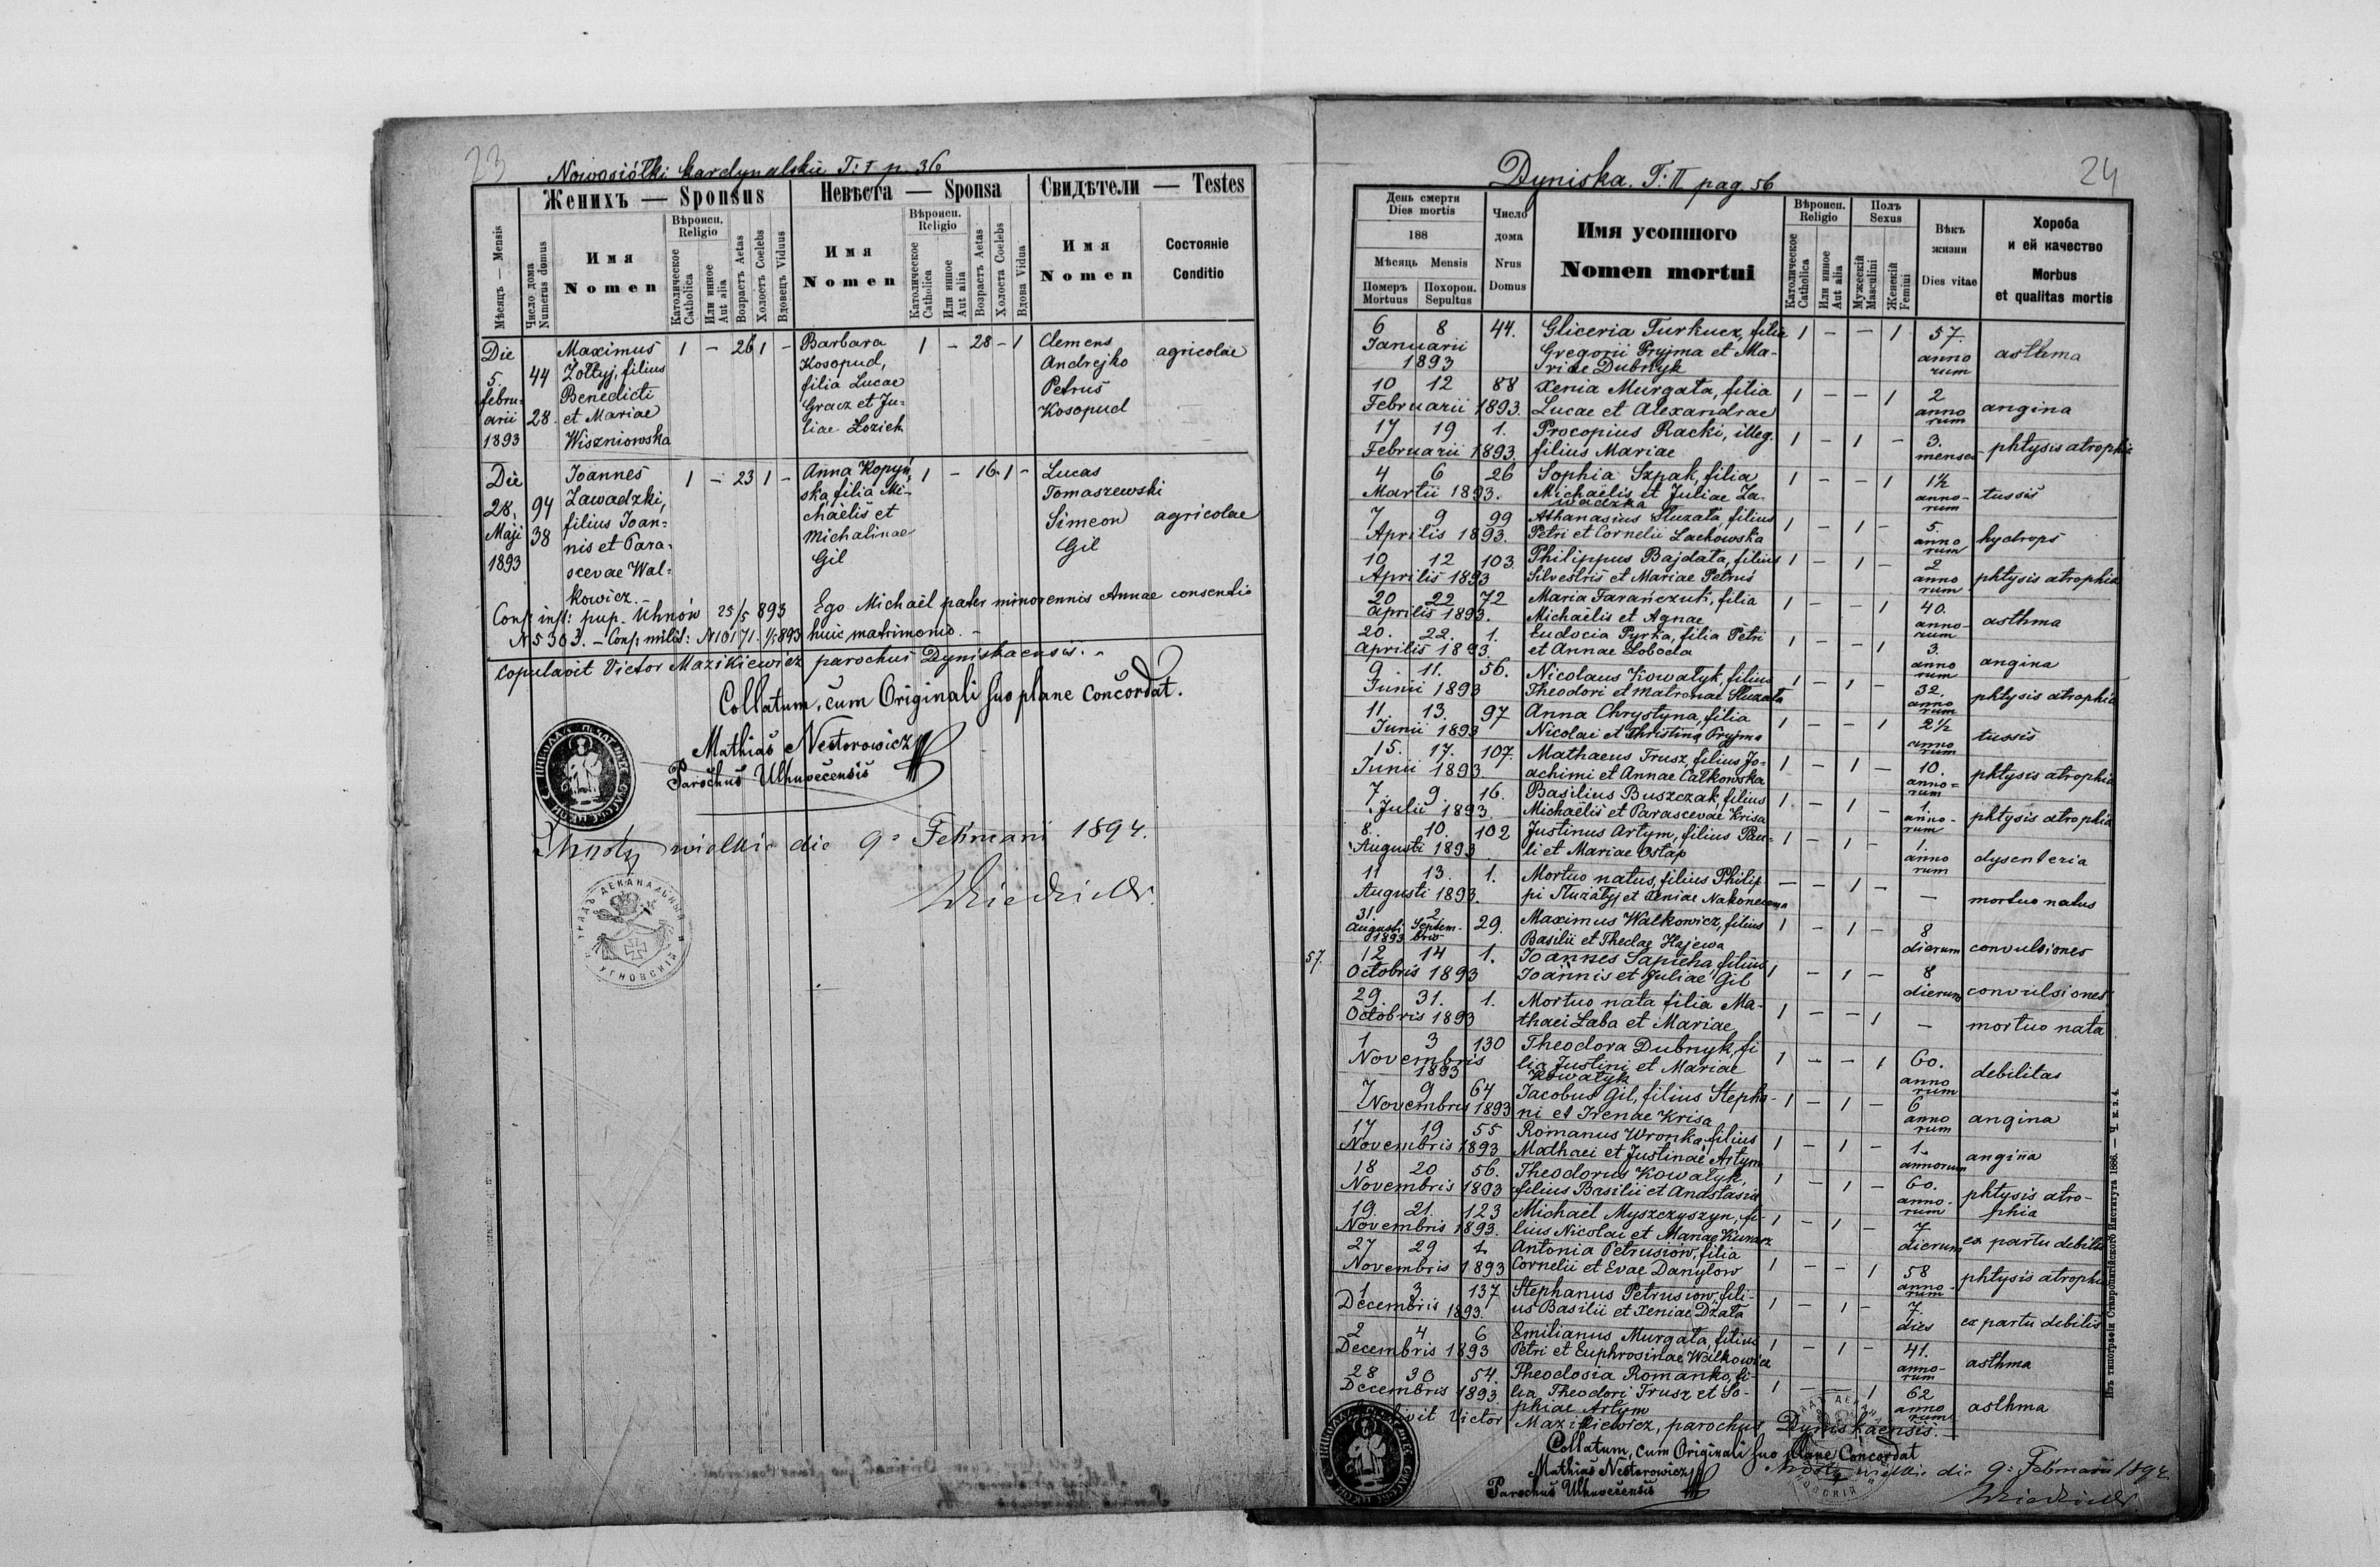 23
Nowosiółki kardynalskie T: I p. 36
Женихъ — Sponsus
Невѣста — Sponsa
Свидѣтели — Testes
Мѣсяць — Mensis
Число дома
Numerus domus
Имя
Nomen
Вѣроисп.
Religio
Католическое
Catholica
Или инное
Aut alia
Возрастъ Aetas
Холостъ Coelebs
Вдовецъ Viduus
Имя
Nomen
Вѣроисп.
Religio
Католическое
Catholica
Или инное
Aut alia
Возрастъ Aetas
Холоста Coelebs
Вдова Vidua
Имя
Nomen
Состояніе
Conditio
Die 5. febru-arii 1893
44 28.
Maximus
Żołtyj, filius
Benedicti
et Mariae
Wiszniowska
1 – 26 1 –
Barbara
Kosopud,
filia Lucae
Gracz et Ju-
liae Łozich
1 – 28 – 1
Clemens
Andrejko
Petrus
Kosopud
agricolae
Die 28. Maji 1893
94 38
Joannes
Zawadzki,
filius Joan=
nis et Para-
scevae Wal=
kowicz.–
1 – 23 1 –
Anna Kopyń-
ska, filia Mi-
chaëlis et
Michalinae
Gil
1 – 16 1 –
Lucas
Tomaszewski
Simeon
Gil
agricolae
Cons: inst: pup. Uhnów 25/5 893
N 5303. – Cons: milit: N 10171. 1/5 893
Ego Michaël pater minorennis Annae consentio
huic matrimonio. –
Copulavit Victor Mazikiewicz parochus Dyniskaensis. –
Collatum, cum Originali suo plane Concordat.
Mathias Nestorowicz
Parochus Uhnovecensis
Mosty wielkie die 9: Februarii 1894.
ДЕКАНАЛЬНЫЙ
УГНОВСКІЙ
24
Dyniska. T: II pag. 56
День смерти
Dies mortis
188
Мѣсяць Mensis
Померъ
Mortuus
Похорон.
Sepultus
Число
дома
Nrus
Domus
Имя усопшого
Nomen mortui
Вѣроисп.
Religio
Католическое
Catholica
Или инное
Aut alia
Полъ
Sexus
Мужескій
Masculini
Женскій
Femini
Вѣкъ
жизни
Dies vitae
Хороба
и ей качество
Morbus
et qualitas mortis
6 8 44. Gliceria Turkucz, filia 1 – – 1 57. annorum asthma
Januarii 1893 Gregorii Pryjma et Ma-
riae Dubnyk
10 12 88 Xenia Murgała, filia 1 – – 1 2 annorum angina
Februarii 1893. Lucae et Alexandrae
17 19 1. Procopius Racki, illeg. 1 – 1 – 3. menses phtysis atrophia
Februarii 1893. filius Mariae
4 6 26 Sophia Szpak, filia 1 – – 1 1½ annorum tussis
Martii 1893. Michaëlis et Juliae Za-
wadzka
7 9 99 Athanasius Słuzała, filius 1 – 1 – 5. annorum hydrops
Aprilis 1893. Petri et Cornelii Lachowska
10 12 103. Philippus Bajdała, filius 1 – 1 – 2 annorum phtysis atrophia
Aprilis 1893 Silvestris et Mariae Petruś
20 22 72 Maria Tarańczuk, filia 1 – – 1 40. annorum asthma
Aprilis 1893. Michaëlis et Agnae
20. 22. 1. Eudocia Pyrka, filia Petri 1 – – 1 3. annorum angina
Aprilis 1893. et Annae Łoboda
9. 11. 56. Nicolaus Kowałyk, filius 1 – 1 – 32. annorum phtysis atrophia
Junii 1893 Theodori et Matronae Słuzała
11. 13. 97 Anna Chrystyna, filia 1 – – 1 2½ annorum tussis
Junii 1893 Nicolai et Christina Pryjma
15. 17. 107. Mathaeus Trusz, filius Jo- 1 – 1 – 10. annorum phtysis atrophia
Junii 1893. achimi et Annae Całkowska
7. 9. 16. Basilius Buszczak, filius 1 – 1 – 1. annorum phtysis atrophia
Julii 1893. Michaëlis et Parascevae Krisa
8. 10. 102 Justinus Artym, filius Pau- 1 – 1 – 1. annorum dysenteria
Augusti 1893 li et Mariae Ostap
11 13. 1. Mortuo natus, filius Philip- – – 1 – – mortuo natus
Augusti 1893. pi Słuzałyj et Xeniae Nakoneczna
31. Augusti 1893 2 Septembris 29. Maximus Walkowicz, filius 1 – 1 – 8 dierum convulsiones
Basilii et Theclae Hajewa
57.
12 14 1. Joannes Sapieha, filius 1 – 1 – 8 dierum convulsiones
Octobris 1893 Joannis et Juliae Gil
29. 31. 1. Mortuo nata filia Ma- 1 – – 1 – mortuo nata
Octobris 1893 thaei Łaba et Mariae
1 3 130 Theodora Dubnyk, fi 1 – – 1 60. annorum debilitas
Novembris 1893 lia Justini et Mariae
Kowałyk
7 9 64 Jacobus Gil, filius Stepha- 1 – 1 – 6 annorum angina
Novembris 1893 ni et Irenae Krisa
17 19 55 Romanus Wronka, filius 1 – 1 – 1. annorum angina
Novembris 1893 Mathaei et Justinae Artym
18 20 56. Theodorus Kowałyk, 1 – 1 – 60. annorum phtysis atro-
phia
Novembris 1893 filius Basilii et Anastasia
19. 21. 123 Michaël Myszczyszyn, fi- 1 – 1 – 7 dierum ex partu debilis
Novembris 1893. lius Nicolai et Mariae Kunarz
27 29 1 Antonia Petrusiów, filia 1 – – 1 58 annorum phtysis atrophia
Novembris 1893 Cornelii et Evae Danyłow
1 3 137 Stephanus Petrusiow, fili- 1 – 1 – 7. dies ex partu debilis
Decembris 1893. us Basilii et Xeniae Dzała
2 4 6 Emilianus Murgała, filius 1 – 1 – 41. annorum asthma
Decembris 1893 Petri et Euphrosinae Walkowicz
28 30 54. Theodosia Romanko, fi- 1 – – 1 62 annorum asthma
Decembris 1893. lia Theodori Trusz et So-
phiae Artym
Victor Mazikiewicz, parochus Dyniskaensis.
Collatum, cum Originali suo plane Concordat
Mathias Nestorowicz
Parochus Uhnovecensis
Mosty wielkie die 9: Februarii 1894
Изъ типографіи Ставропигійского Института 1886. — Ч. к. з. 4.